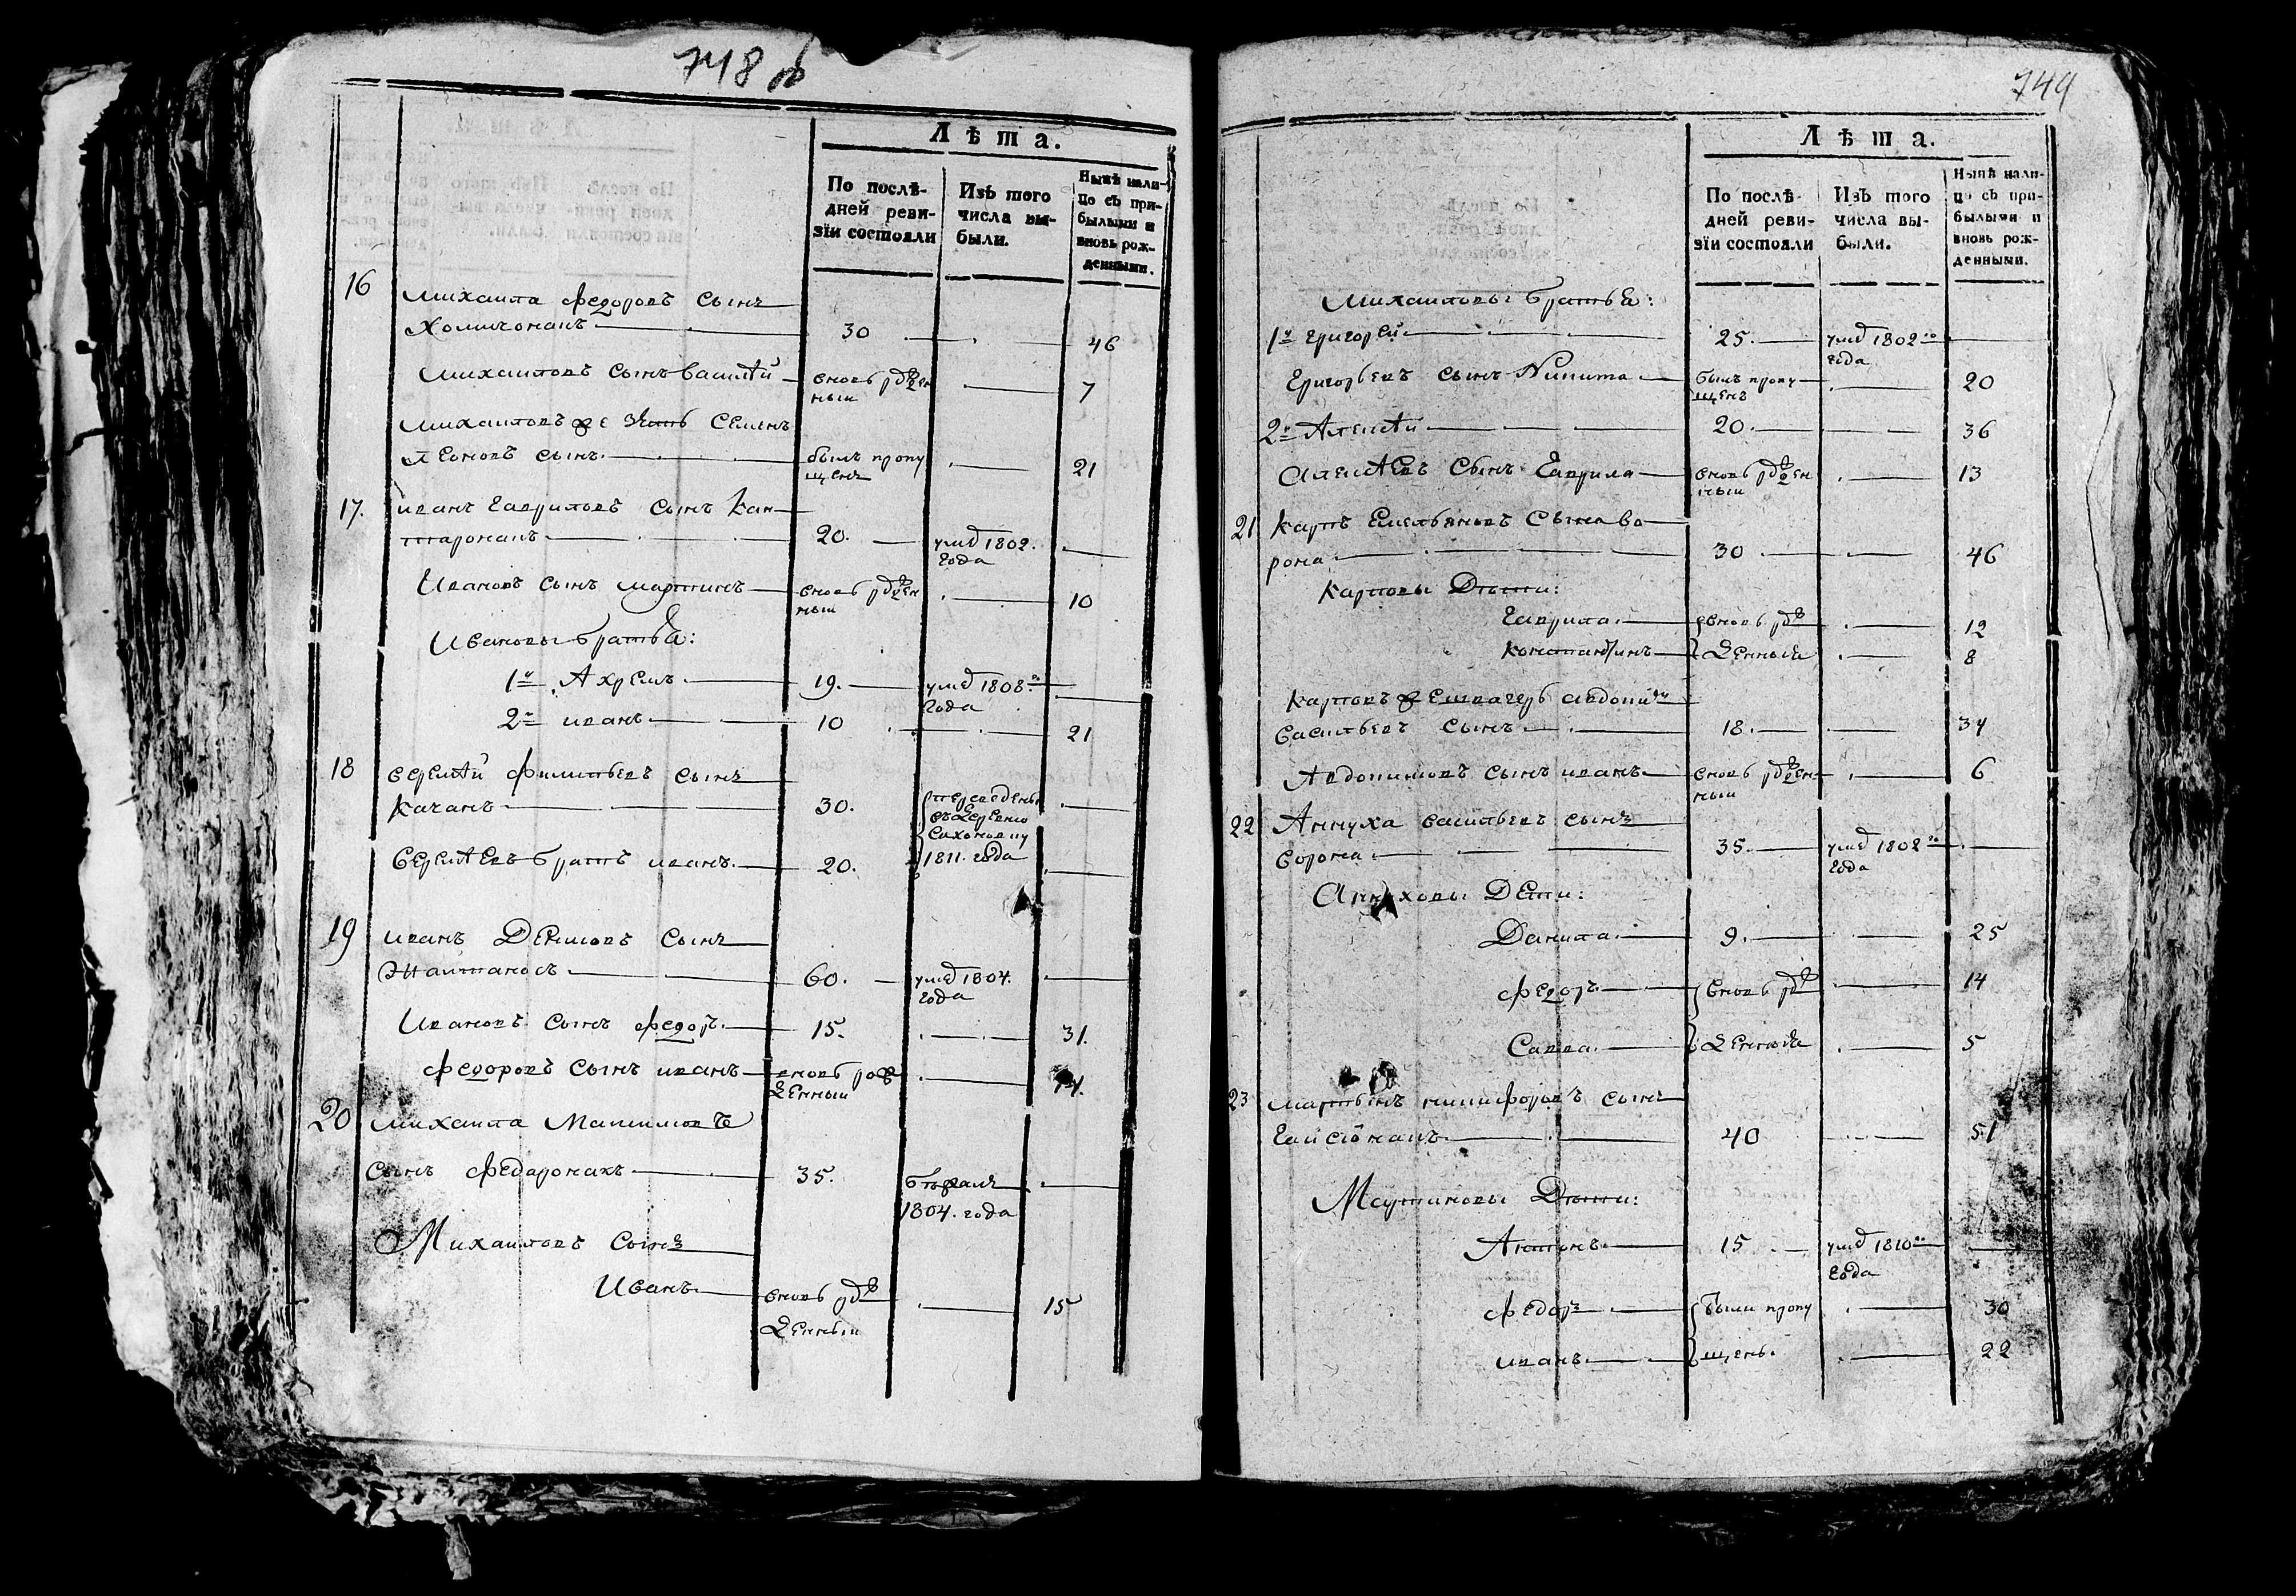 748 об
Лѣта.
По послѣ-
дней реви-
зїи состояли
Изъ того
числа вы-
были.
Нынѣ нали-
цо съ при-
былыми и
вновь рож-
денными.
16 Михаила Федоровъ сынъ
Хомичонакъ 30 46
Михаиловъ сынъ Василѣй вновь рожден 7
ный
Михаиловъ же зять Семенъ
Леоновъ сынъ былъ пропу 21
щенъ
17. Иванъ Гавриловъ сынъ Кан
таронакъ 20. умѣ 1802.
года
Ивановъ сынъ Мартинъ вновь рожден 10
ный
Ивановы братья:
1й Ахремъ 19. умѣ 1808го
года
2й Иванъ 10 21
18 Сергѣй Филипьевъ сынъ
Качанъ 30. переведены
въ деревню
Сахоновку
Сергѣевъ братъ Иванъ 20. 1811. года
19 Иванъ Денисовъ сынъ
60. умѣ 1804.
года
Ивановъ сынъ Федоръ 15. 31.
Федоровъ сынъ Иванъ вновь рож 14.
денный
20 Михаила Максимовъ
сынъ Федаронакъ 35. бѣжалъ
1804. года
Михаиловъ сынъ
Иванъ вновь рож 15
денный
749
Лѣта.
По послѣ-
дней реви-
зїи состояли
Изъ того
числа вы-
были.
Нынѣ нали-
цо съ при-
былыми и
вновь рож-
денными.
Михаиловы братья:
1й Григорей 25. умѣ 1802го
года
Григорьевъ сынъ Никита былъ пропу 20
щенъ
2й Алексѣй 20. 36
Алексѣевъ сынъ Гаврила вновь рожден 13
ный
21 Карпъ Емельяновъ сынъ Во
рона 30 46
Карповы дѣти:
Гаврила вновь рож 12
Константинъ денныя 8
Карповъ же швагеръ Авдоким
Васильевъ сынъ 18. 34
Авдокимовъ сынъ Иванъ вновь рожден 6
ный
22 Аннуха Васильевъ сынъ
Ворона 35. умѣ 1802го
года
Аннуховы дети:
Данила 9. 25
Федоръ вновь рож 14
Савва денныя 5
23 Мартынъ Никифоровъ сынъ
40 51
Мартиновы дѣти:
Антонъ 15 умѣ 1810го
года
Федоръ были пропу 30
Иванъ щены. 22